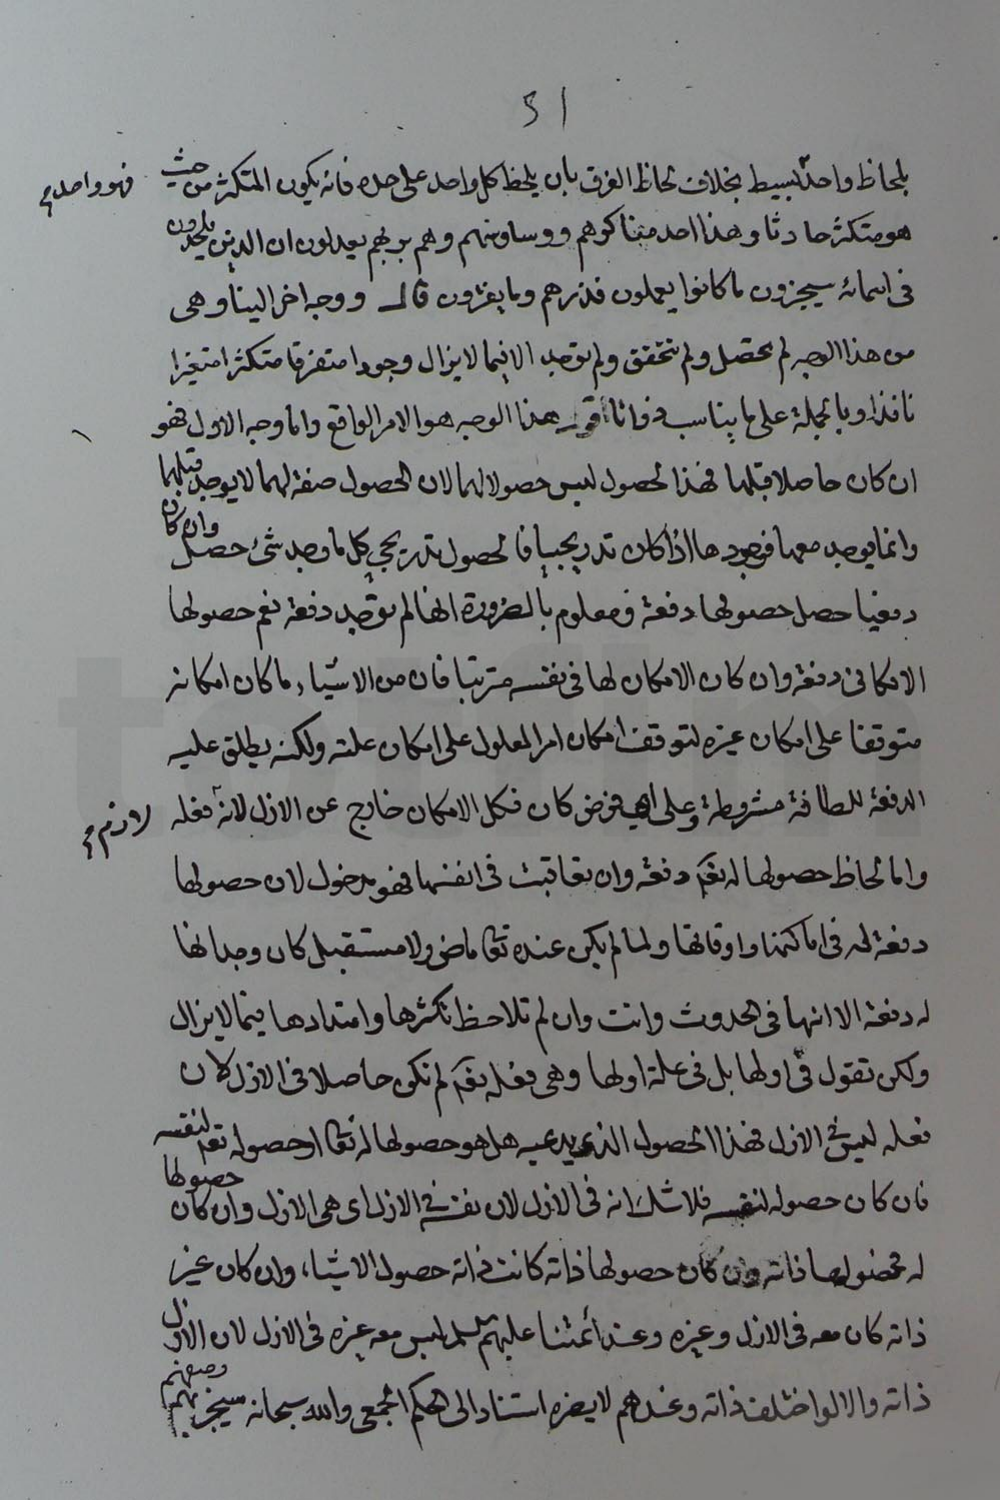 ٥١
بلحاظ واحد بسيط بخلاف لحاظ الفرق بان يلحظ كل واحد على حده فانه يكون المتكثر من حيث
فهو واحد
هو متكثر حادثا وهذا احد مناكرهم ووساوسهم وهم بربهم يعدلون ان الذين يلحدون
فى اسمائه سيجزون ما كانوا يعملون فذرهم وما يفترون قال ووجه اخر الينا وهى
من هذا الوجه لم تحصل ولم تتحقق ولم توجد الا فيما لا يزال وجودا متفرقا متكثرا متغيرا
نافذا وبالجملة على ما يناسب ذواتنا اقول هذا الوجه هو الامر الواقع واما وجه الاول فهو
ان كان حاصلا قبلها فهذا الحصول ليس حصولا لها لان الحصول صفة لها لا يوجد قبلها
وانما يوجد معها فوجودها اذا كان تدريجيا فالحصول تدريجى كل ما وجد شئ حصل وان كان
دفعيا حصل حصولها دفعة ومعلوم بالضرورة انها لم توجد دفعة نعم حصولها
الامكانى دفعة وان كان الامكان لها فى نفسه مترتبا فان من الاشياء ما كان امكانه
متوقفا على امكان غيره لتوقف امكان امر المعلول على امكان علته ولكنه يطلق عليه
الدفعة للطافة مشروطة وعلى اى فرض كان فكل الامكان خارج عن الازل لانه فعله
لازم
واما لحاظ حصولها له تعالى دفعة وان تعاقبت فى انفسها فهو مدخول لان حصولها
دفعة له فى اماكنها واوقاتها ولما لم يكن عنده تعالى ماض ولا مستقبل كان وجدانها
له دفعة الا انها فى الحدوث وانت وان لم تلاحظ تكثرها وامتدادها فيما لا يزال
ولكن تقول فى اولها بل فى علة اولها وهى فعله تعالى لم تكن حاصلا فى الازل لان
فعله ليس فى الازل فهذا الحصول الذى يدعيه هل هو حصولها له تعالى او حصوله تعالى لنفسه
فان كان حصوله لنفسه فلا شك انه فى الازل لان نفسه فى الازل اى هى الازل وان كان حصولها
له فحضولها ذاته وان كان حصولها ذاته كانت ذاته حصول الاشياء، وان كان غير
ذاته كان معه فى الازل وغيره وعند ائمتنا عليهم السلام ليس معه غيره فى الازل لان الازل
ذاته والا لو اختلف ذاته وعندهم لا يضره استنادا الى الحكم الجمعى والله سبحانه سيجزيهم وصفهم